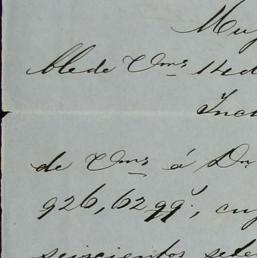 Muy
ble de Vms 14 d
Inc
de Vms á Dn
926,6299, cu
seiscientos sete